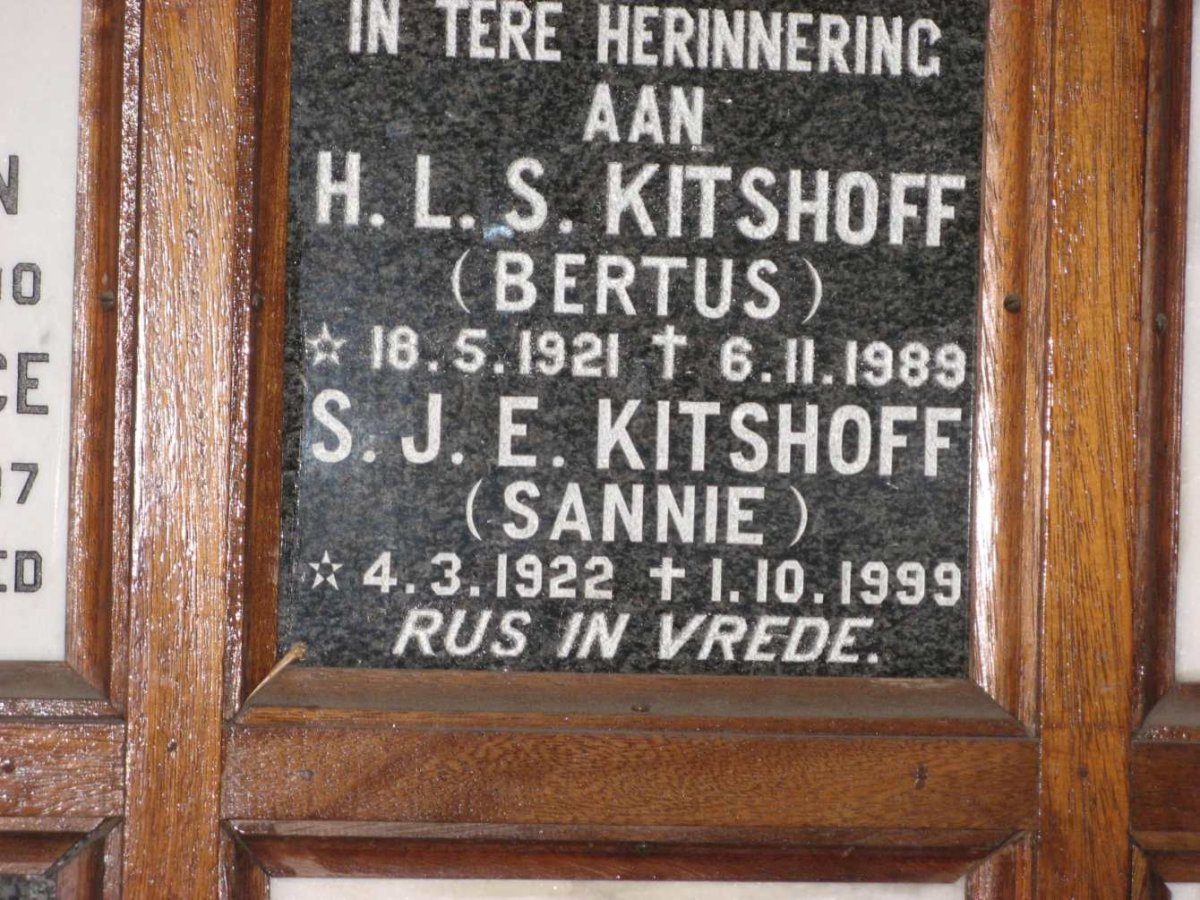 IN TERE HERINNERING
AAN
H. L. S. KITSHOFF
(BERTUS)
☆ 18.5.1921 ✝ 6.11.1989
S. J. E. KITSHOFF
(SANNIE)
☆ 4.3.1922 ✝ 1.10.1999
RUS IN VREDE.